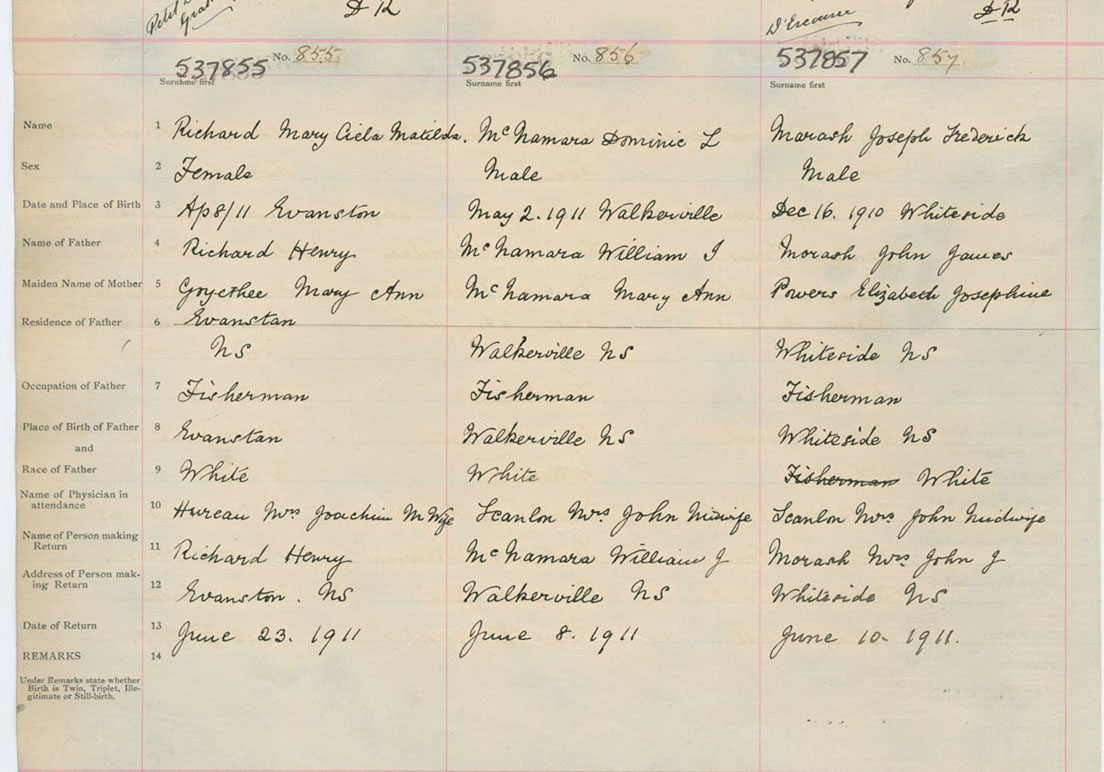 D R D'Escousse D R
537855 No. 855. 537856 No. 856 537857 No. 857.
Surname first Surname first Surname first
Name 1 Richard Mary Ciela Matilda. McNamara Dominic L Marash Joseph Frederick
Sex 2 Female Male Male
Date and Place of Birth 3 Ap 8/11 Evanston May 2. 1911 Walkerville Dec 16. 1910 Whiteside
Name of Father 4 Richard Henry McNamara William J Morash John James
Maiden Name of Mother 5 Goyethee Mary Ann McNamara Mary Ann Powers Elizabeth Josephine
Residence of Father 6 Evanstan
NS Walkerville NS Whiteside NS
Occupation of Father 7 Fisherman Fisherman Fisherman
Place of Birth of Father 8 Evanstan Walkerville NS Whiteside NS
and
Race of Father 9 White White Fisherman White
Name of Physician in
attendance 10 Hureau Mrs Joachim M Wife Scanlon Mrs John Midwife Scanlon Mrs John Midwife
Name of Person making
Return 11 Richard Henry McNamara William J Morash Mrs John J
Address of Person mak-
ing Return 12 Evanston. NS Walkerville NS Whiteside NS
Date of Return 13 June 23. 1911 June 8. 1911 June 10. 1911.
REMARKS 14
Under Remarks state whether
Birth is Twin, Triplet, Ille-
gitimate or Still-birth.